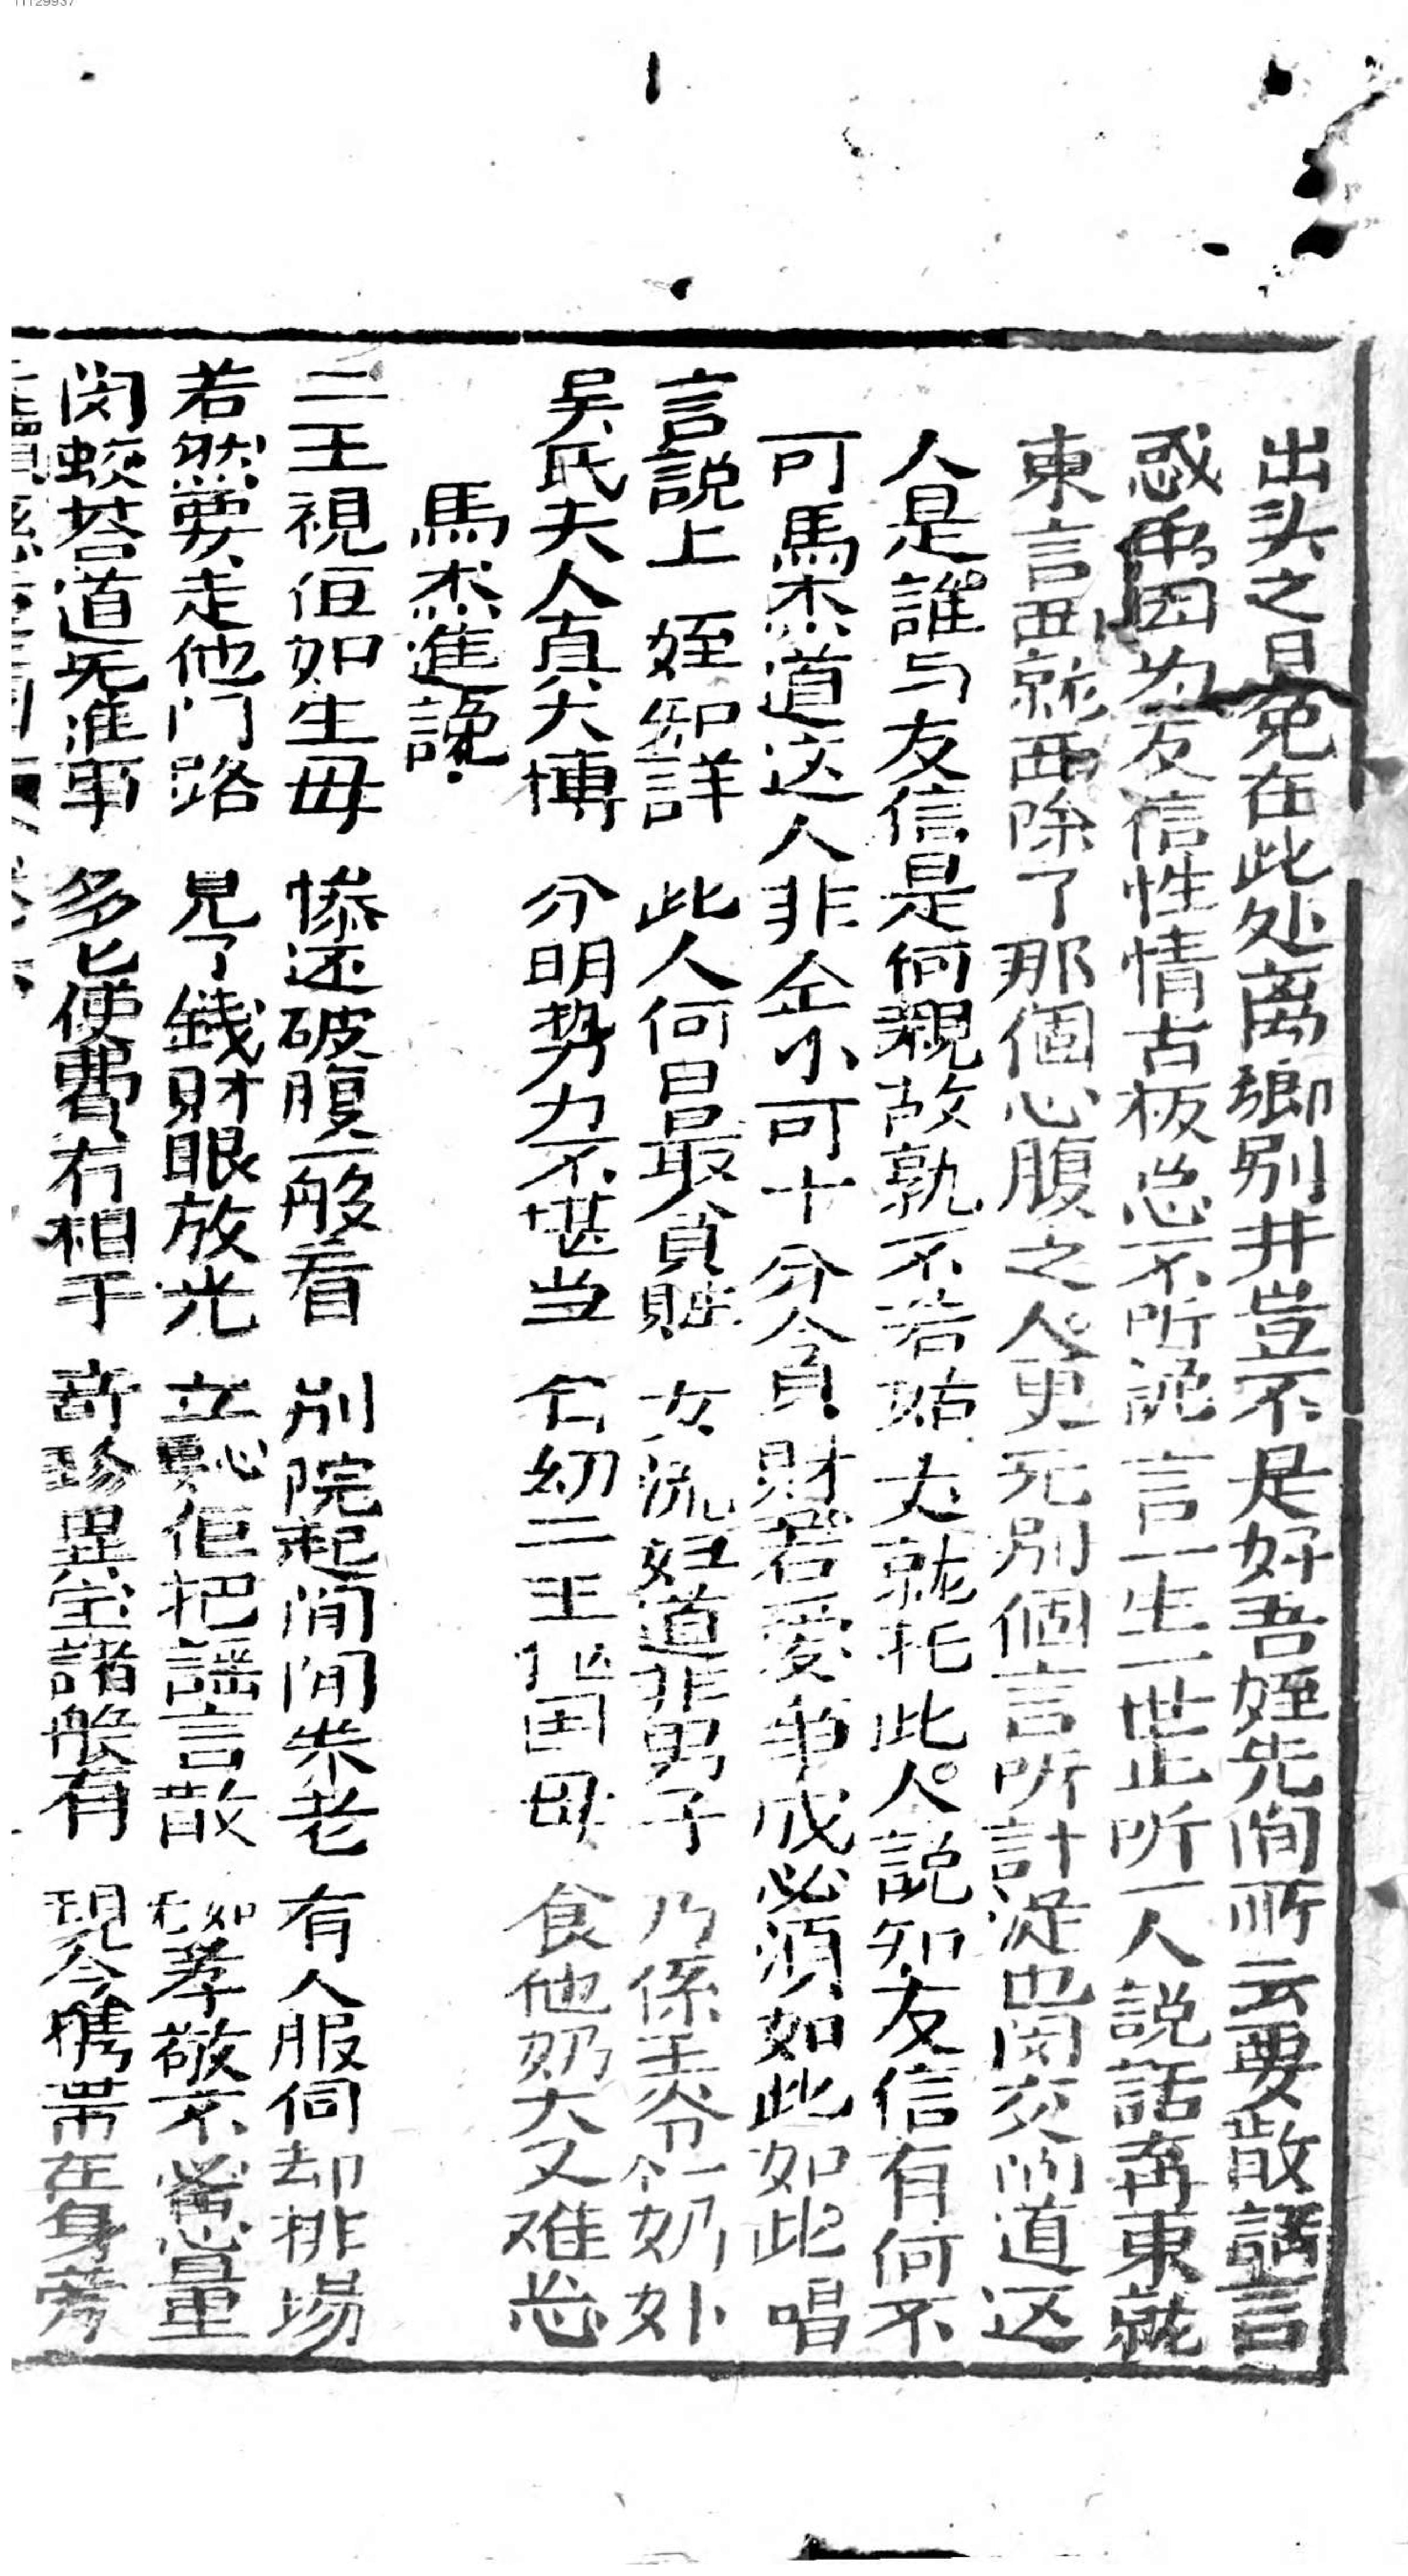 出头之日免在此处离鄉别井豈不是好吾姪先间所云要散謠言
惑 因为友信性情古板总不听謊言一生一世止听一人說話再東就
東言西就西除了那個心腹之人更无別個言听計從也闵交问道这
人是誰与友信是何親故孰不若姑丈就托此人說知友信有何不
可馬杰道这人非企小可十分贪財若爱事成必須如此如此唱
言說上 姪知詳 此人何日最貪賍 女流妇道非男子 乃係王爷一奶妳
吴氏夫人真大樽 分明势力不堪当 仝幼二王 国母 食他奶大又难忘
馬杰進讒
二王視佢如生母 惨还破腹一般看 别院起间间养老 有人服侍却排場
若然要走他门路 見了錢財眼放光 立 佢把謠言散 如孝敬不當量
闵蛟荅道无准事 多匕使費冇相干 奇珍異宝諸般有 現今携带在身旁